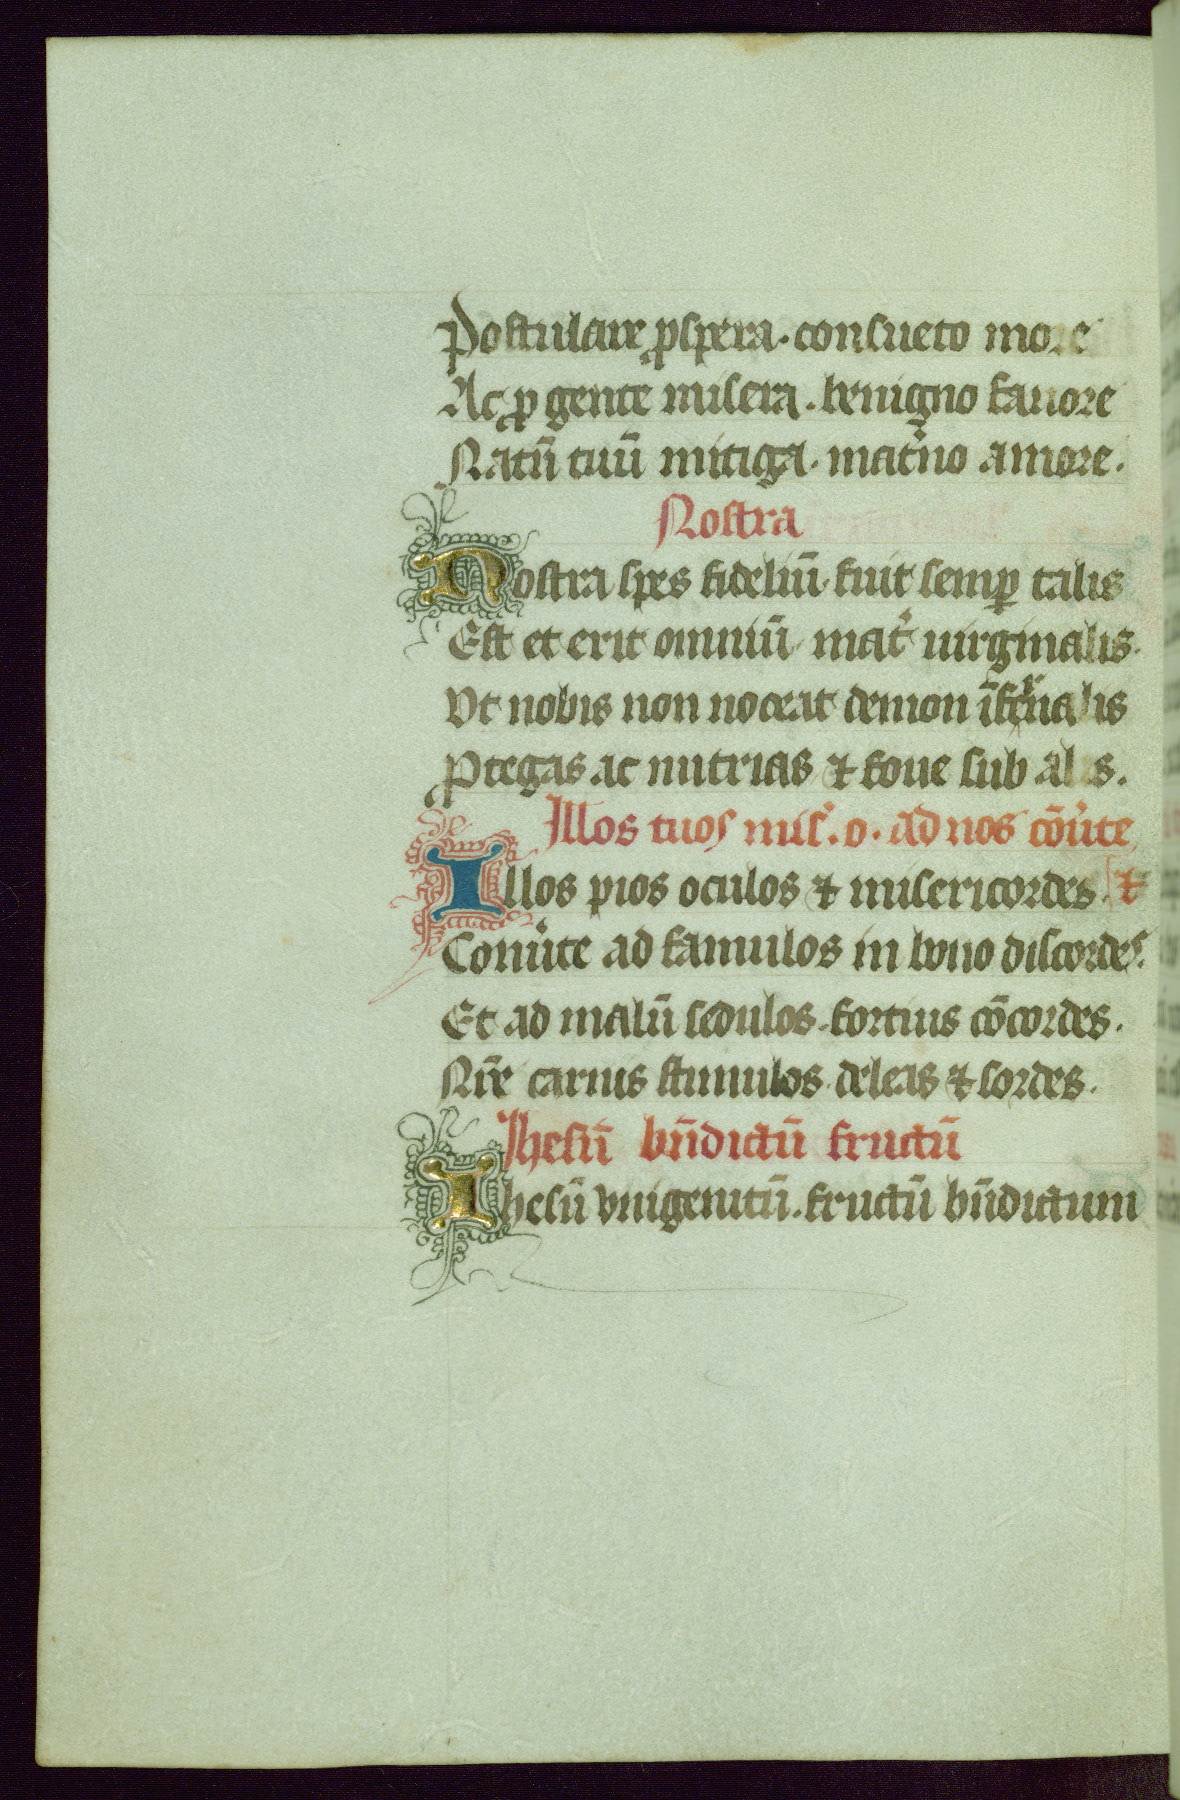 Postulare ꝓspera. consueto more
Ac ꝓ gente misera. benigno fauore
Natū tuū mitiga. mat̓no amore.
Nostra
Nostra spes fideliū. fuit semꝑ talis
Est et erit omniū mat̓ uirginalis.
Vt nobis non noceat demon īfernalis
Ꝓtegas ac nutrias ⁊ foue sub alis.
Illos tuos mis̓. o. ad nos cōu̓te
Illos pios oculos ⁊ misericordes. ⁊
Conu̓te ad famulos in bono discordes.
Et ad malū sedulos. fortius cōcordes.
Nr̄e carnis stimulos deleas ⁊ sordes.
Ihesū bn̄dictū fructū
Ihesū vnigenitū. fructū bn̄dictum